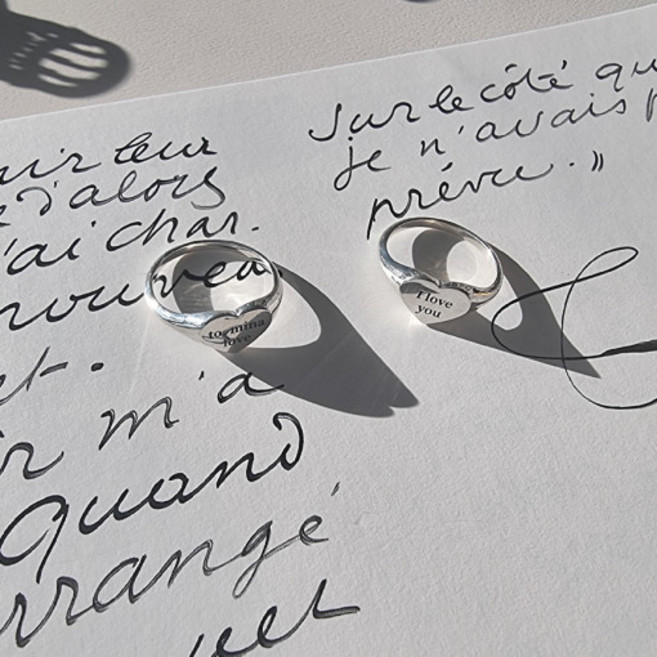 leur
d'alors
'ai char.
nouveau
et.
m'a
quand
rrangé
Sur le côté qu
je n'avais p
prévu.»
to mina
love
I love
you